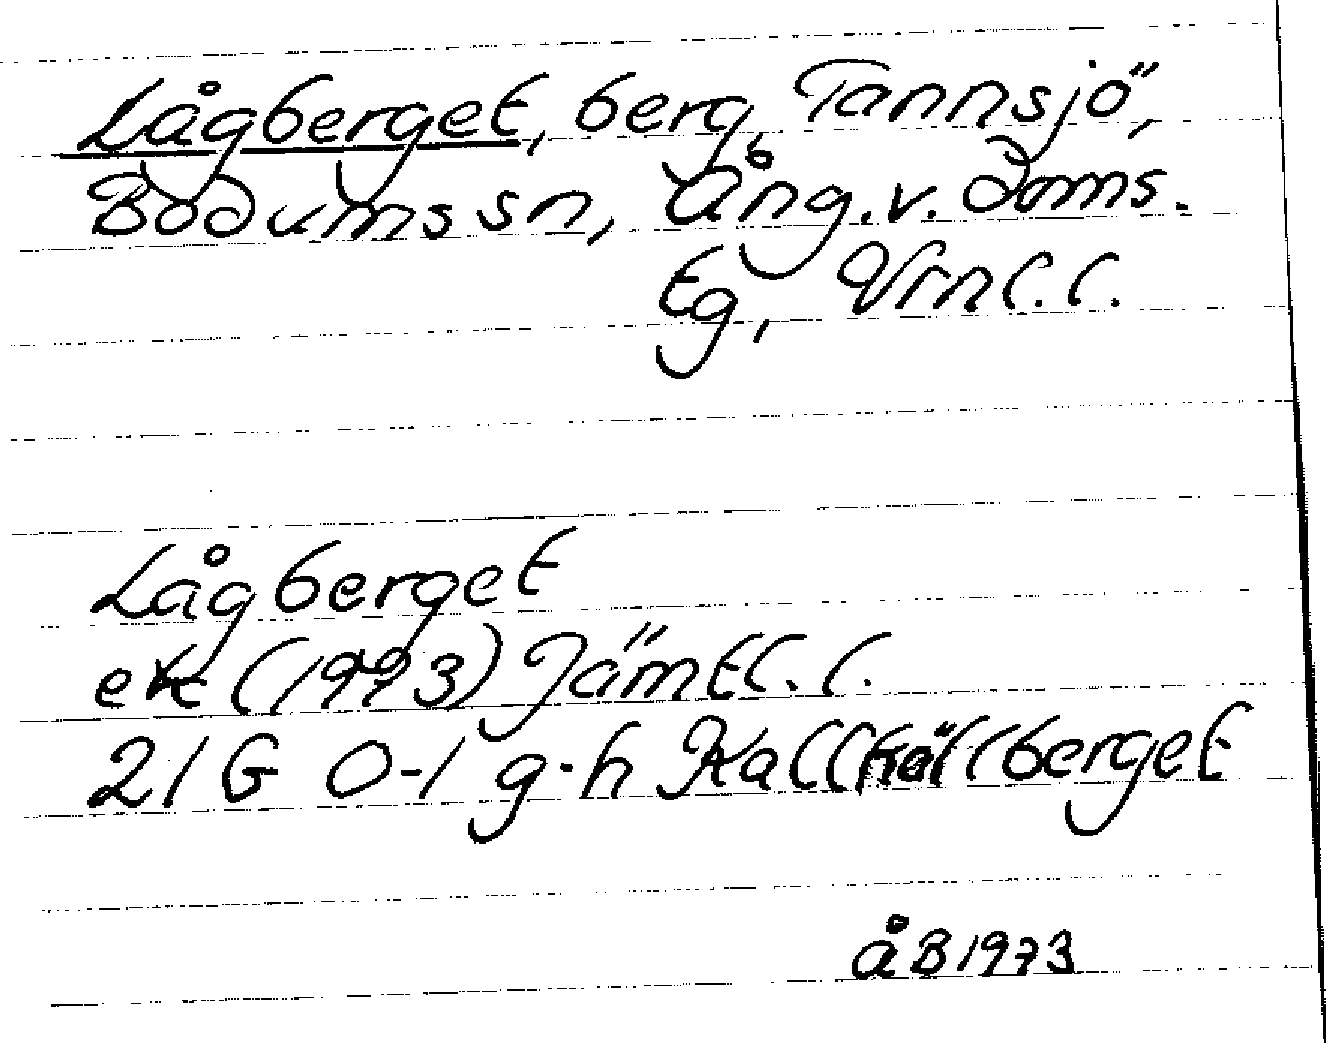 Lågberget, berg, Tannsjö,
Bodums sn, Ång.v. doms.
tg, Vrnl.l.
Lågberget
ek (1973) Jämtl.l.
21 G 0-1 g-h Kallhällberget
åB 1973